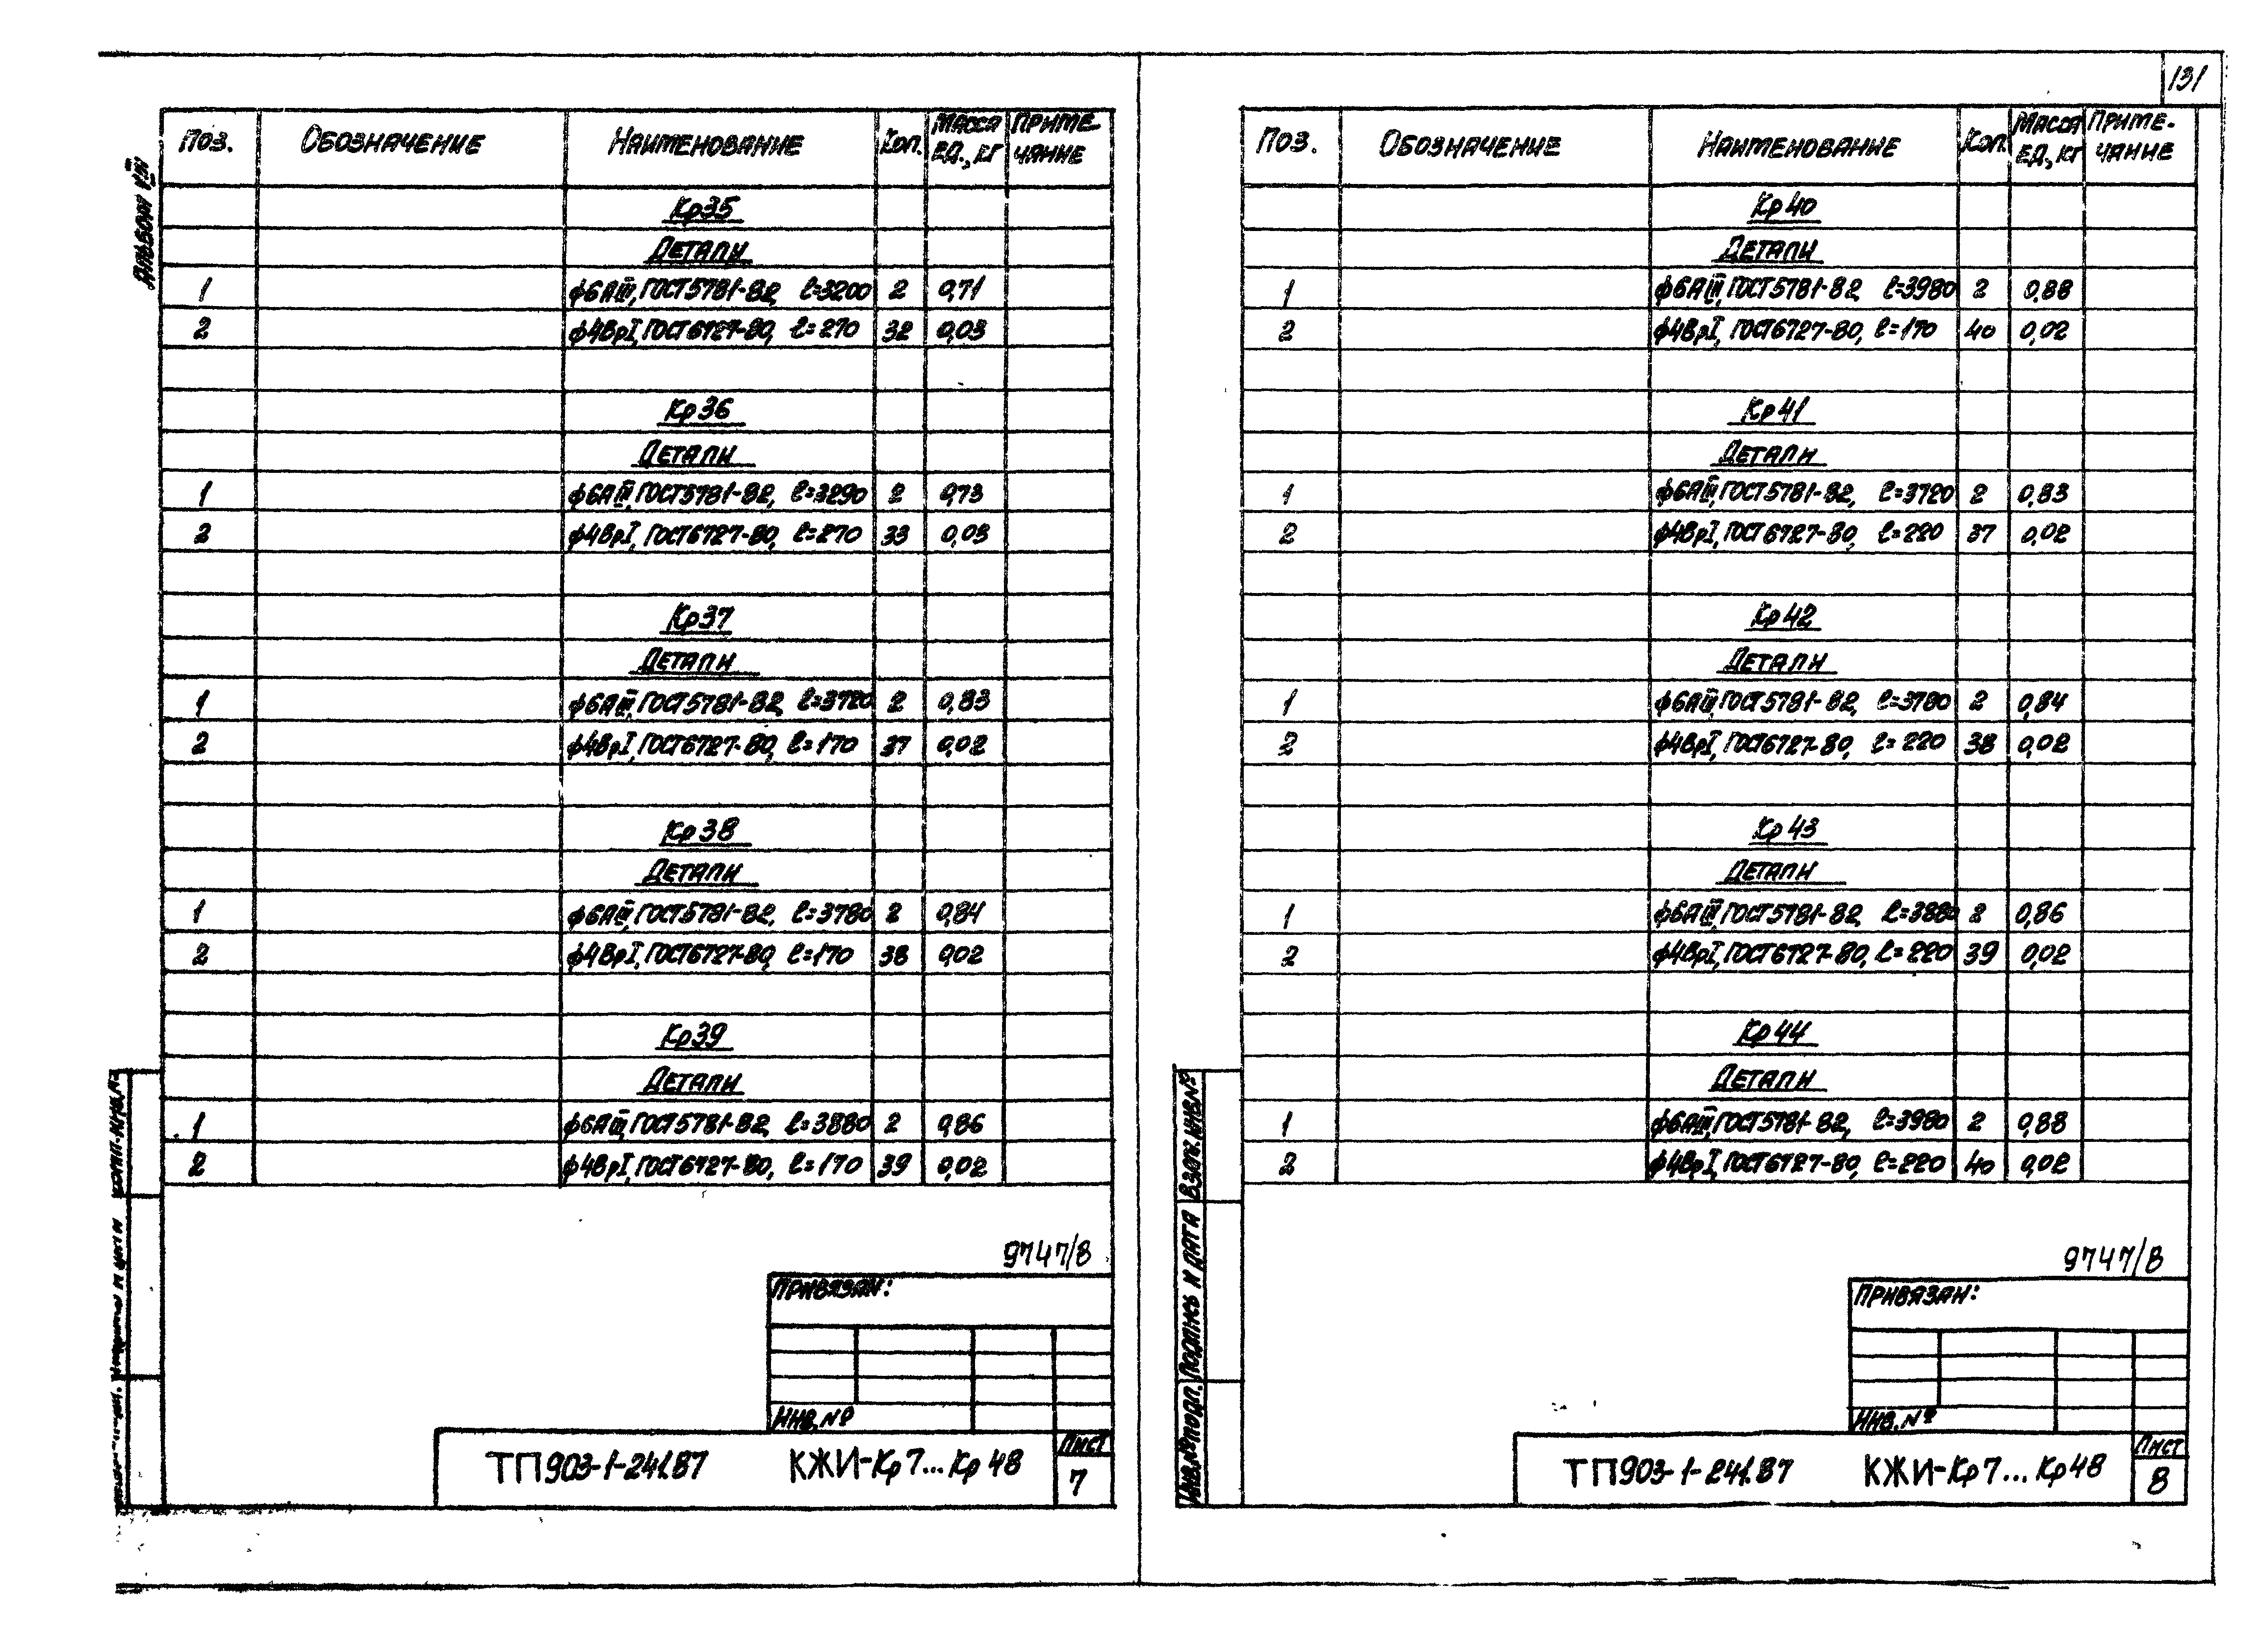 131
Альбом VIII
Поз. Обозначение Наименование Кол. Масса ед., кг Приме-чание
Кр35
Детали
1 ϕ6АIII, ГОСТ5781-82, ℓ=3200 2 0,71
2 ϕ4ВрI, ГОСТ6727-80, ℓ=270 32 0,03
Кр36
Детали
1 ϕ6АIII, ГОСТ5781-82, ℓ=3290 2 0,73
2 ϕ4ВрI, ГОСТ6727-80, ℓ=270 33 0,03
Кр37
Детали
1 ϕ6АIII, ГОСТ5781-82, ℓ=3720 2 0,83
2 ϕ4ВрI, ГОСТ6727-80, ℓ=170 37 0,02
Кр38
Детали
1 ϕ6АIII, ГОСТ5781-82, ℓ=3780 2 0,84
2 ϕ4ВрI, ГОСТ6727-80, ℓ=170 38 0,02
Кр39
Детали
1 ϕ6АIII, ГОСТ5781-82, ℓ=3880 2 0,86
2 ϕ4ВрI, ГОСТ6727-80, ℓ=170 39 0,02
9747/8
Привязан:
Инв.№
ТП903-1-241.87 КЖИ-Кр7...Кр48
Лист
7
Поз. Обозначение Наименование Кол. Масса ед., кг Приме-чание
Кр40
Детали
1 ϕ6АIII, ГОСТ5781-82, ℓ=3980 2 0,88
2 ϕ4ВрI, ГОСТ6727-80, ℓ=170 40 0,02
Кр41
Детали
1 ϕ6АIII, ГОСТ5781-82, ℓ=3720 2 0,83
2 ϕ4ВрI, ГОСТ6727-80, ℓ=220 37 0,02
Кр42
Детали
1 ϕ6АIII, ГОСТ5781-82, ℓ=3780 2 0,84
2 ϕ4ВрI, ГОСТ6727-80, ℓ=220 38 0,02
Кр43
Детали
1 ϕ6АIII, ГОСТ5781-82, ℓ=3880 2 0,86
2 ϕ4ВрI, ГОСТ6727-80, ℓ=220 39 0,02
Кр44
Детали
1 ϕ6АIII, ГОСТ5781-82, ℓ=3980 2 0,88
2 ϕ4ВрI, ГОСТ6727-80, ℓ=220 40 0,02
Инв.№подл. Подпись и дата Взам.инв.№
9747/8
Привязан:
Инв.№
ТП903-1-241.87 КЖИ-Кр7...Кр48
Лист
8